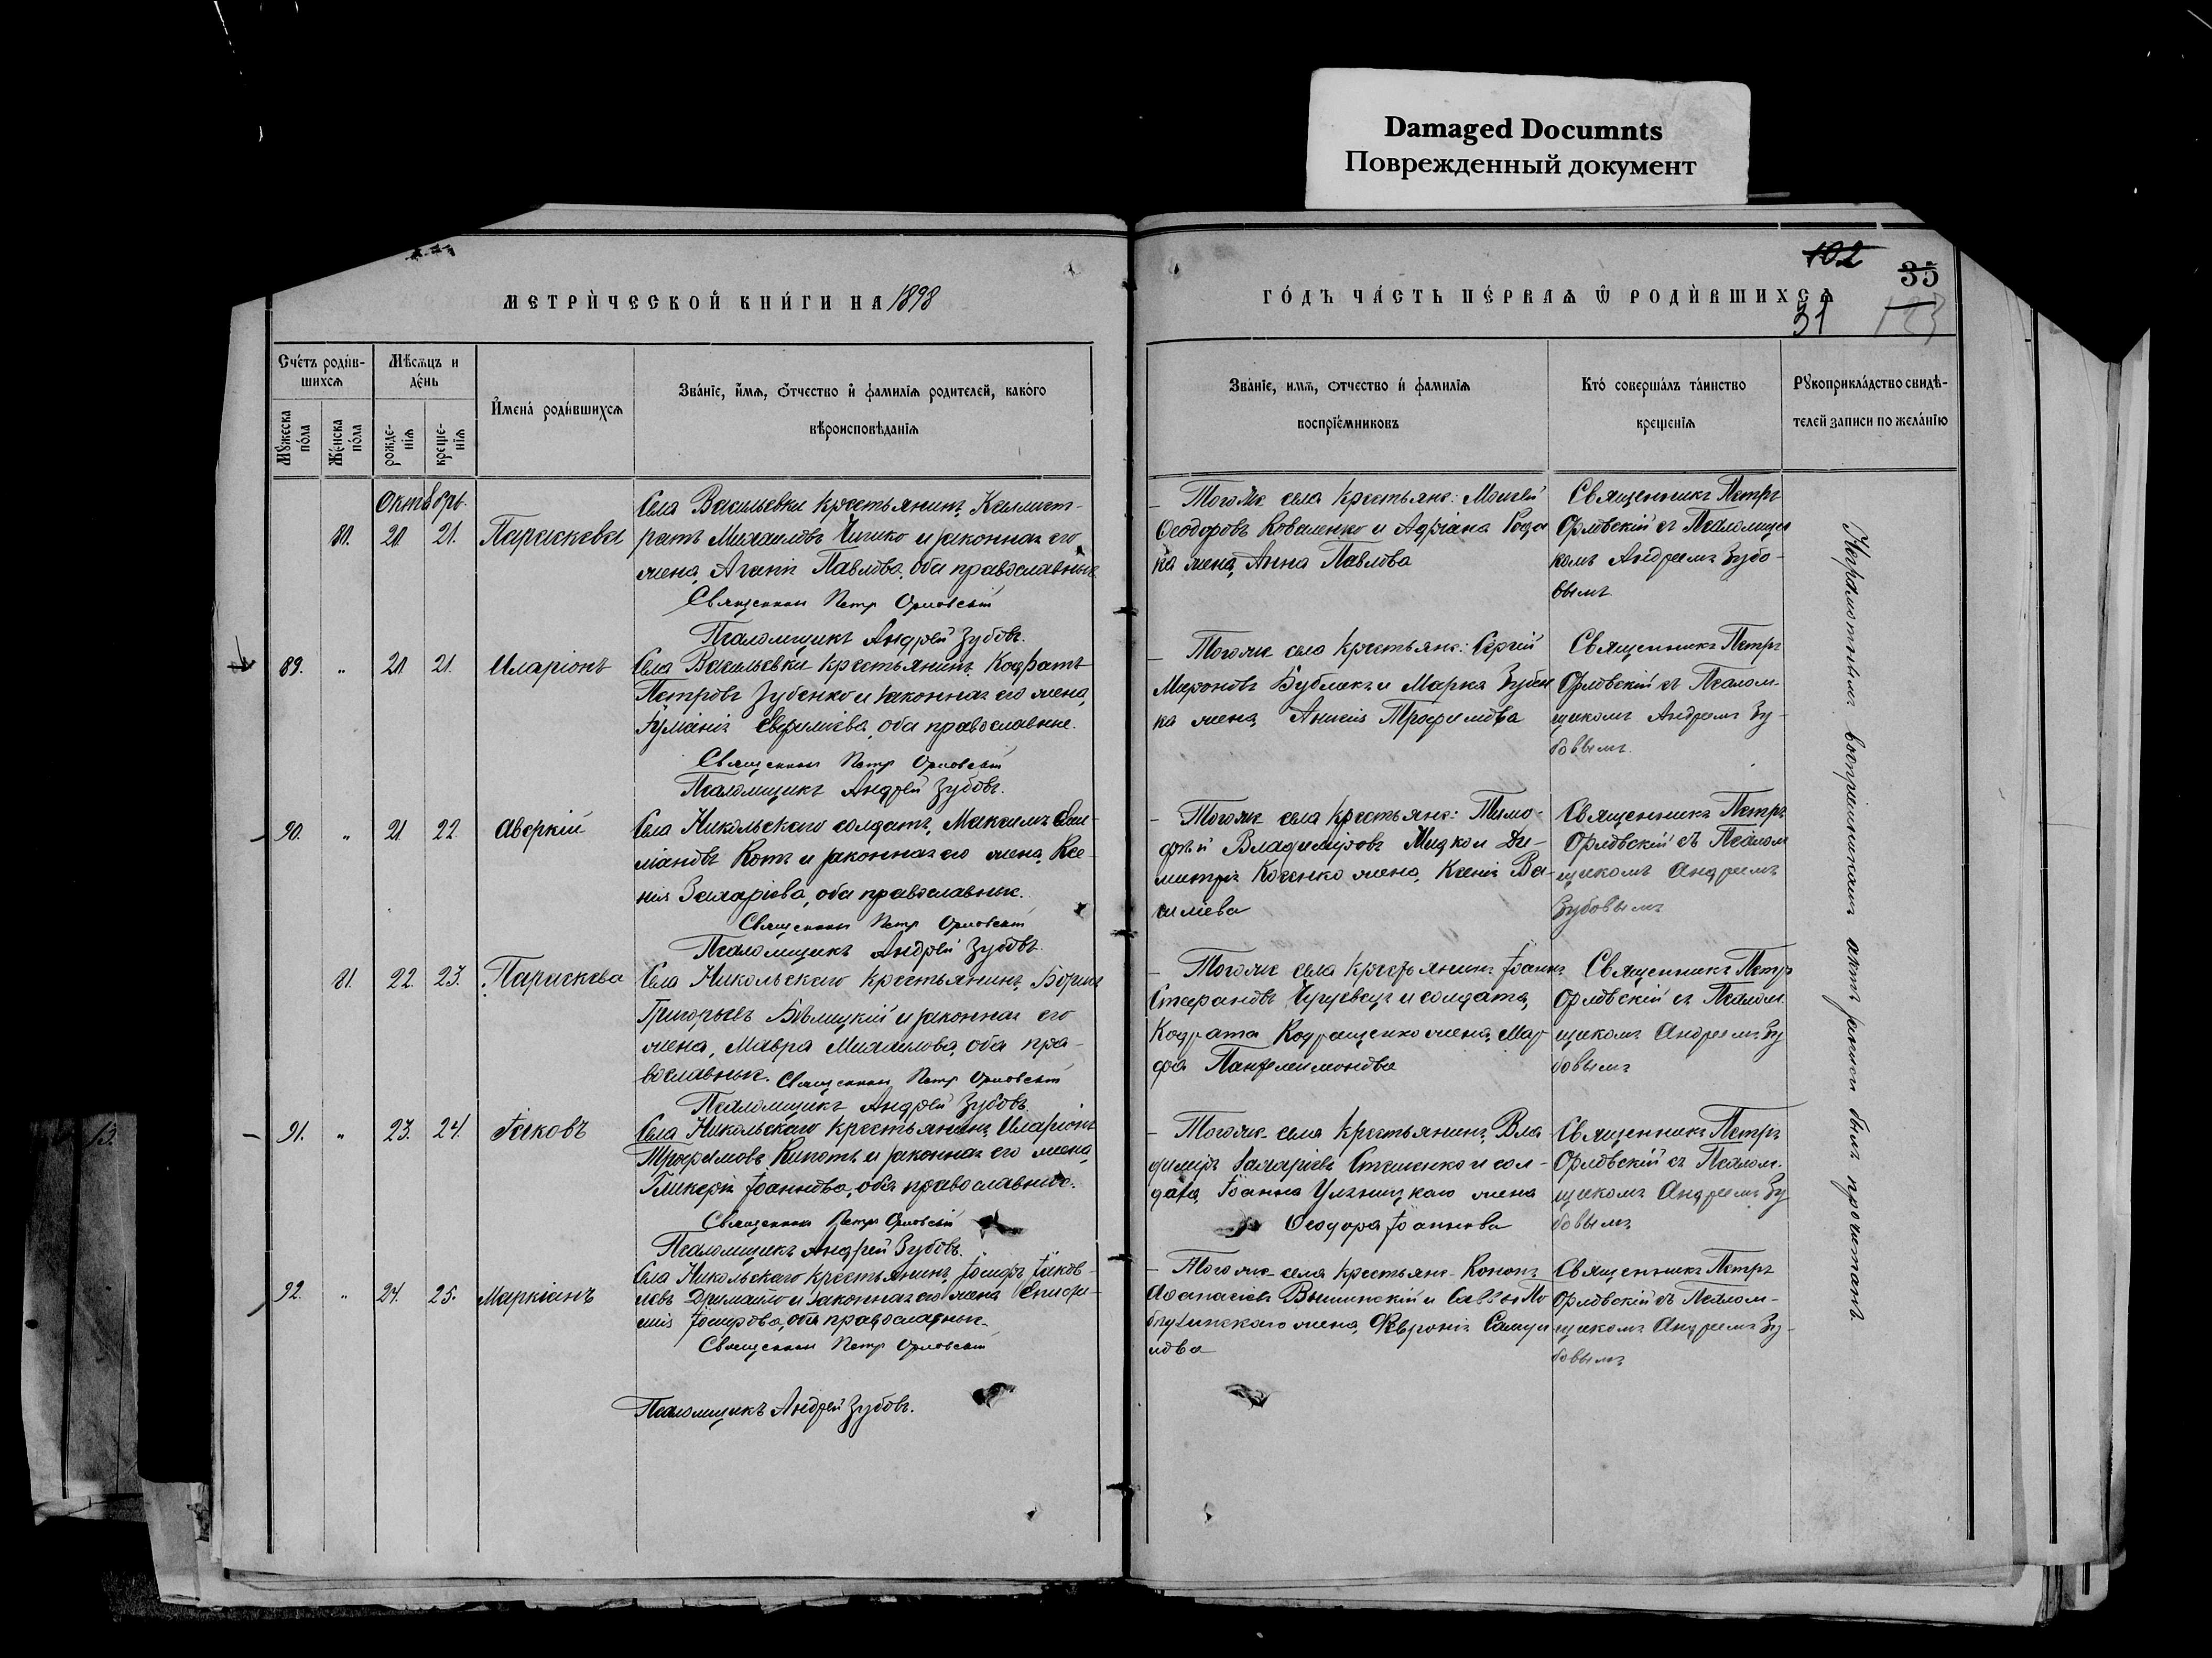 Damaged Documnts
Поврежденный документ
102
35
31
123
МЕТРИ́ЧЕСКОЙ КНИ́ГИ НА 1898
ГО́ДЪ ЧА́СТЬ ПЕ́РВАЯ Ѡ РОДИ́ВШИХСѦ
Сче́тъ роди́в-
шихсѧ
Мѣсѧцъ и
де́нь
Мꙋжеска по́ла
Же́нска по́ла
рожде-
нїѧ
креще-
нїѧ
И҆мена́ роди́вшихсѧ
Зва́нїе, и҆́мѧ, ѻ҆́тчество и҆ фами́лїѧ родителей, како́го
вѣроисповѣданїѧ
Зва́нїе, имѧ, ѻтчество и҆ фами́лїѧ
воспрїе́мниковъ
Кто́ соверша́лъ та́инство
крещенїѧ
Рꙋкоприкла́дство свидѣ-
телей записи по жела́нїю
Октябрь.
80. 20. 21. Параскева
Села Васильевки крестьянинъ, Каллист-
ратъ Михаиловъ Чишко и законная его
жена, Агапія Павлова, оба православные
Священник Петр Орловскій
Псаломщикъ Андрей Зубовъ.
Тогоже села крестьяне: Моисей
Ѳеодоровъ Коваленко и Адріана Коза
ка жена, Анна Павлова
Священникъ Петръ
Орловскій съ Псаломщи
комъ Андреемъ Зубо-
вымъ
89. " 20 21. Иларіонъ
Села Васильевки крестьянинъ, Кодратъ
Петровъ Зубенко и законная его жена,
Іуліанія Евфиміева, оба православные.
Священник Петр Орловскій
Псаломщикъ Андрей Зубовъ.
Тогоже села крестьяне: Сергій
Мироновъ Бубликъ и Марка Зубен
ка жена, Анисія Трофимова
Священникъ Петръ
Орловскій съ Псалом-
щикомъ Андреемъ Зу-
бовымъ.
90. " 21 22 Аверкій
Села Никольскаго солдатъ, Максимъ
міановъ Котъ и законная его жена, Ксе-
нія Захаріева, оба православные.
Священник Петр Орловскій
Псаломщикъ Андрей Зубовъ.
Тогоже села крестьяне: Тимо-
фѣй Владиміровъ и Ди-
митрія Косенко жена, Ксенія Ва-
силіева
Священникъ Петръ
Орловскій съ Псалом
щикомъ Андреемъ
Зубовымъ
81. 22. 23. Параскева
Села Никольскаго крестьянинъ, Борисъ
Григорьевъ Бѣлицкій и законная его
жена, Мавра Михаилова, оба пра-
вославные. Священник Петр Орловскій
Псаломщикъ Андрей Зубовъ.
Тогоже села крестьянинъ Іоаннъ
Стефановъ Чугуевецъ и солдата,
Кодрата Кодращенко жена, Мар-
фа Пантелеимонова
Священникъ Петр
Орловскій съ Псалом-
щикомъ Андреемъ Зу
бовымъ
91. " 23. 24. Іаковъ
Села Никольскаго крестьянинъ, Иларіонъ
Трофимовъ Кипоть и законная его жена,
Гликерія Іоаннова, оба православные.
Священник Петръ Орловскій
Псаломщикъ Андрей Зубовъ.
Тогоже села крестьянинъ, Вла
диміръ Захаріевъ Стешенко и сол-
дата, Іоанна Уляницкаго жена
Ѳеодора Іоаннова
Священникъ Петръ
Орловскій съ Псалом-
щикомъ Андреемъ Зу
бовымъ
92. " 24. 25. Маркіанъ
Села Никольскаго крестьянинъ, Іосифъ Іаков-
левъ Дримайло и законная его жена
Іосифова, оба православные.
Священник Петр Орловскій
Псаломщикъ Андрей Зубовъ.
Тогоже села крестьяне Кононъ
Аѳанасіевъ Вышинскій и Саввы
жена, Февронія Самуи
лова
Священникъ Петръ
Орловскій съ Псалом-
щикомъ Андреемъ Зу-
бовымъ
Неграмотнымъ воспріемникамъ актъ записи былъ прочитанъ.